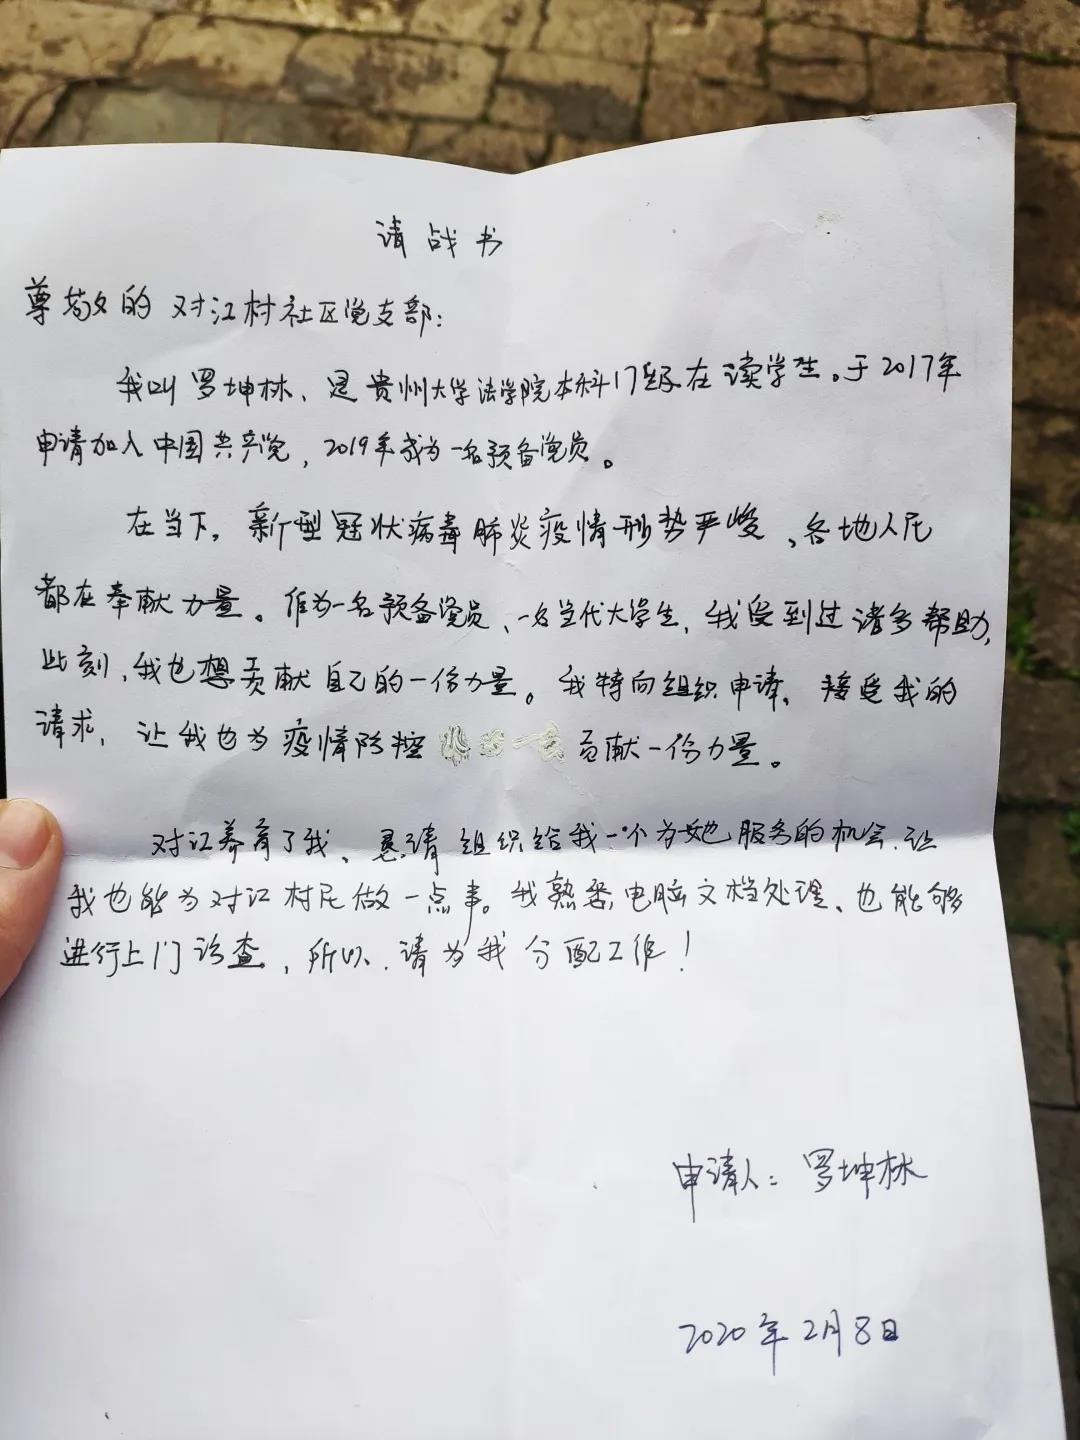 请战书
尊敬的对江村社区党支部:
我叫罗坤林、是贵州大学法学院本科17级在读学生。于2017年
申请加入中国共产党,2019年成为一名预备党员。
在当下,新型冠状病毒肺炎疫情形势严峻、各地人民
都在奉献力量。作为一名预备党员、一名当代大学生,我受到过诸多帮助,
此刻,我也想贡献自己的一份力量。我特向组织申请,接受我的
请求,让我也为疫情防控贡献一份力量。
对江养育了我、恳请组织给我一个为她服务的机会,让
我也能为对江村民做一点事。我熟悉电脑文档处理、也能够
进行上门访查,所以,请为我分配工作!
申请人:罗坤林
2020年2月8日